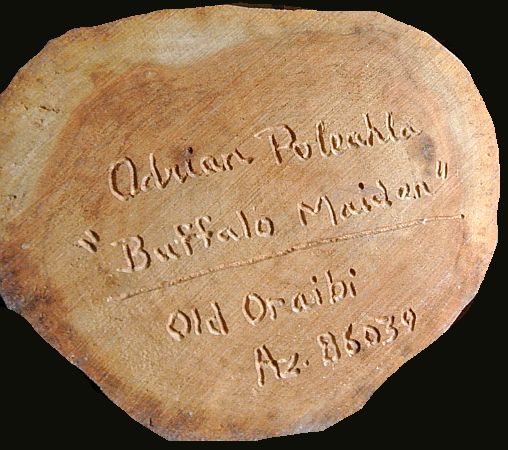 Adrian Poleahla
"Buffalo Maiden"
Old Oraibi
Az. 86039